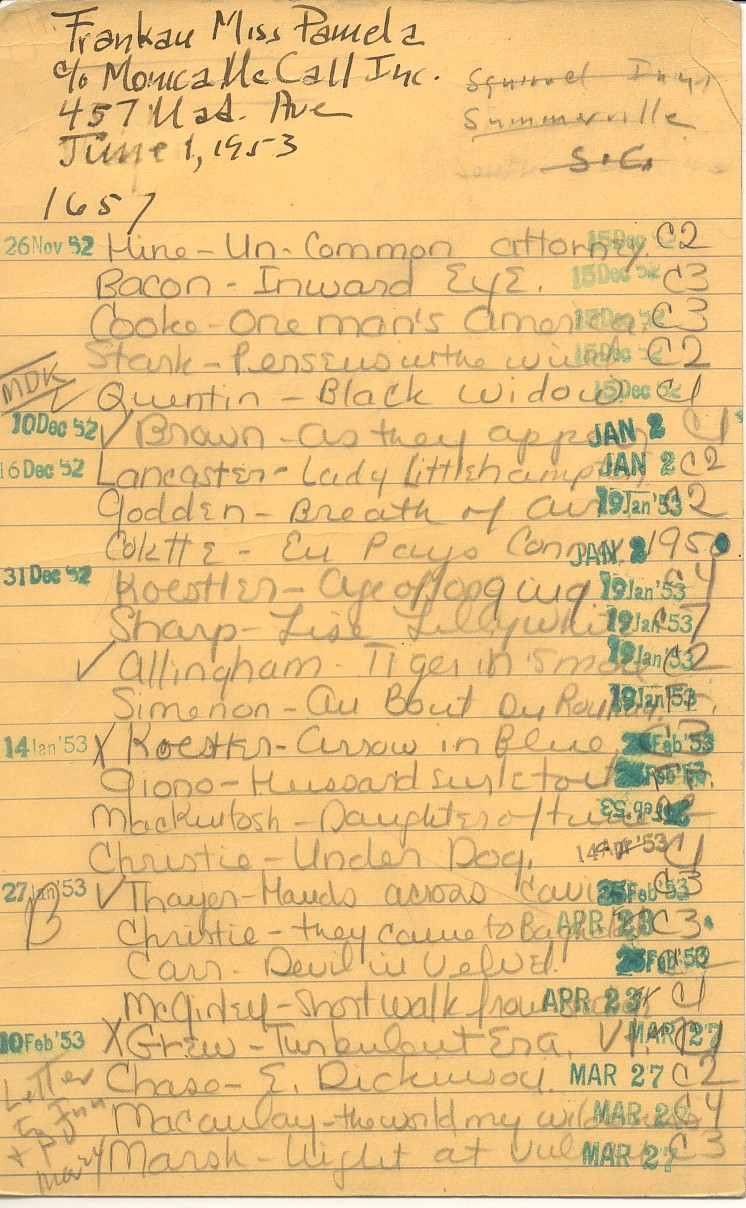 Frankau Miss Pamela
c/o Monica McCall Inc.
457 Mad. Ave
June 1, 1953
Squirrel Inn
Summerville
S.C.
1657
26 Nov '52 Hine - Un-Common attorney. 15 Dec '52 C2
Bacon - Inward EyE. 15 Dec '52 C3
Cooke - One man's America 15 Dec '52 C3
Stark - Perseus in the wind 15 Dec '52 C2
MDK
✓ Quentin - Black Widow 15 Dec '52 C1
10 Dec '52 ✓ Brown - as they appear JAN 2 C1
16 Dec '52 Lancaster - Lady Littlehampton JAN 2 C2
Godden - Breath of air 19 Jan '53 C2
Colette - En Pays Connu JAN 2 1950
31 Dec '52 Koestler - Age of longing 19 Jan '53 C4
Sharp - Lise Lillywhite 19 Jan '53 C7
✓ Allingham - Tiger in Smoke 19 Jan '53 C2
Simenon - Au Bout Du Rouleau. 19 Jan '53 Fr.
14 Jan '53 X Koestler - Arrow in Blue 25 Feb '53 C3
Giono - Hussard sur le toit 25 Feb '53 Fr.
Mackintosh - Daughter of time 25 Feb '53 C2
Christie - Under Dog. 14 Apr '53 C1
27 Jan '53 ✓ Thayer - Hands across 25 Feb '53 C3
B
Christie - they came to Baghdad APR 23 C3
Carr - Devil in Velvet. 25 Feb '53 C2
McGinley - Short walk from APR 23 C1
10 Feb '53 X Grew - Turbulent Era. V1. MAR 27
Chase - E. Dickinson. MAR 27 C2
Macaulay - the world my wilderness MAR 27 C4
Marsh - Night at Vulcan MAR 27 C3
Letter
+
Mary